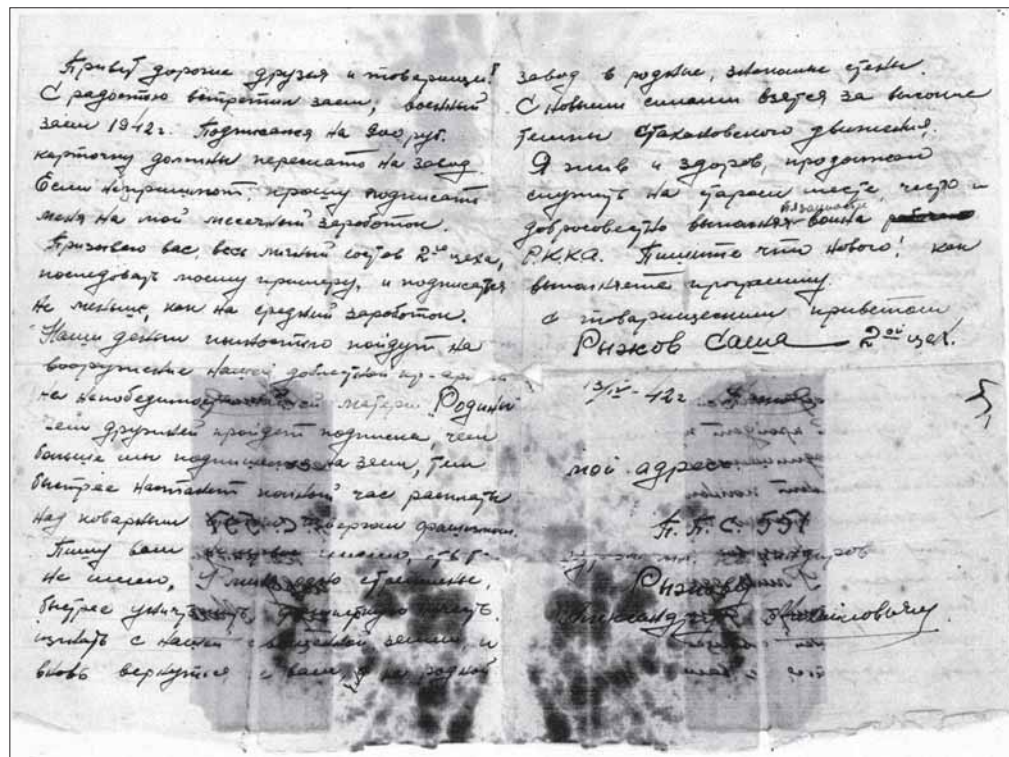 Привет дорогие друзья и товарищи!
С радостью встретил заем, военный
заем 1942г. Подписался на 200 руб.
карточку должны переслать на завод.
Если непришлют, прошу подписать
меня на мой месечный зароботок.
Призываю вас, весь личный состав 2го цеха,
последовать моему примеру, и подписатся
не меньше, как на средний зароботок.
Наши деньги полностью пойдут на
вооружение нашей доблестной
на непобедимость матери Родины
чем дружней пройдет подписка, чем
больше мы подпишемся на заем, тем
быстрее настанет полный час расплаты
над коварным извергом фашизмом.
Пишу вам письмо,
не имею. У меня одно стремленье,
быстрее уничтожить фашистскую нечисть
изгнать с нашей священной земли и
вновь вернутся с вами на родной
завод в родные, знакомые стены.
С новыми силами взятся за высокие
темпы стахановского движения.
Я жив и здоров, продолжаю
служить на старом месте, честно и
добросовестно выполняя воина
Р.К.К.А. Пишите что нового! как
выполняете программу.
с товарищеским приветом
Рыжков Саша 2ой цех.
13/IV-42г
мой адрес
П.П.С.
Рыжкову
Александру